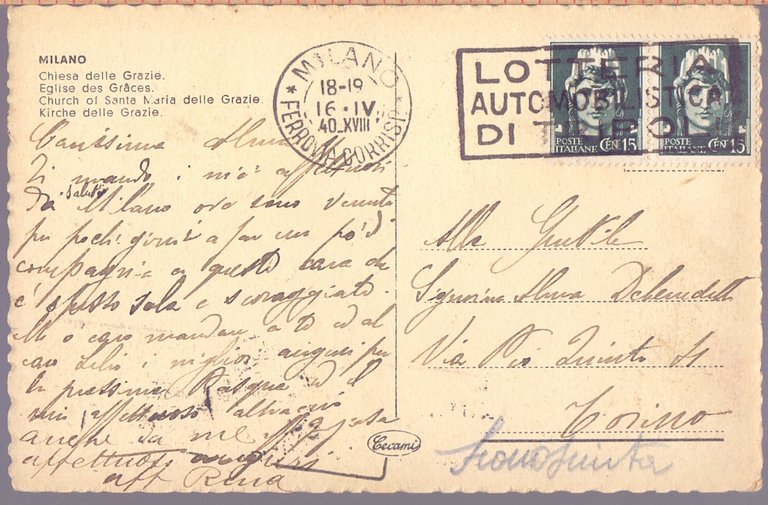 MILANO
Chiesa delle Grazie.
Eglise des Grâces.
Church of Santa Maria delle Grazie.
Kirche delle Grazie.
* MILANO *
18-19
16·IV
40.XVIII
FERROVIA CORRISP.
LOTTERIA
AUTOMOBILISTICA
DI TRIPOLI
POSTE ITALIANE CEN. 15
POSTE ITALIANE CEN. 15
Carissima Alma
Ti mando i miei affettuosi
saluti
da Milano ove sono venuta
per pochi giorni a far un po' di
compagnia a questi cara che
è spesso sola e scoraggiata.
a te ed al
caro Lelio i migliori auguri per
la prossima Pasqua ed il
mio affettuoso abbraccio
anche da me
affettuosi auguri
aff Rena
Alla Gentile
Signorina Alma Debenedetti
Via Pio Quinto
Torino
Cecami